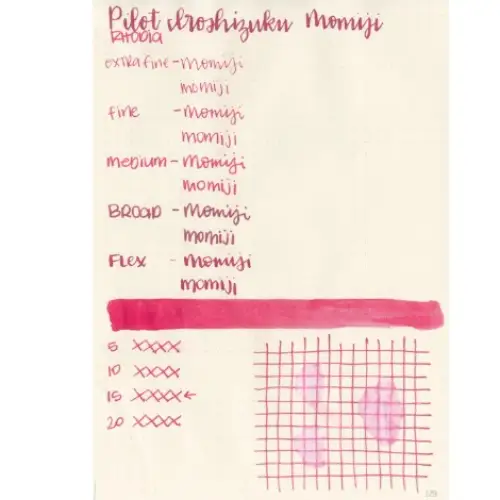 Pilot Iroshizuku Momiji
Rhodia
extra fine - Momiji
momiji
fine - Momiji
momiji
medium - Momiji
momiji
BROAD - Momiji
momiji
Flex - Momiji
momiji
5 XXXX
10 XXXX
15 XXXX ←
20 XXXX